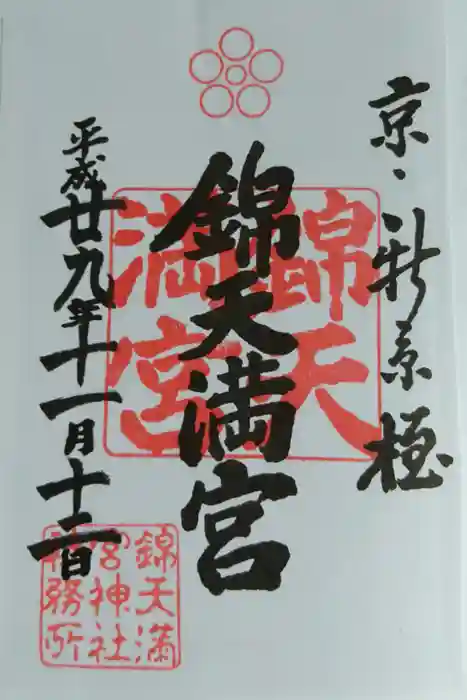 京・新京極
錦天満宮
錦天
満宮
平成廿九年十一月十二日
錦天満
宮神社
社務所